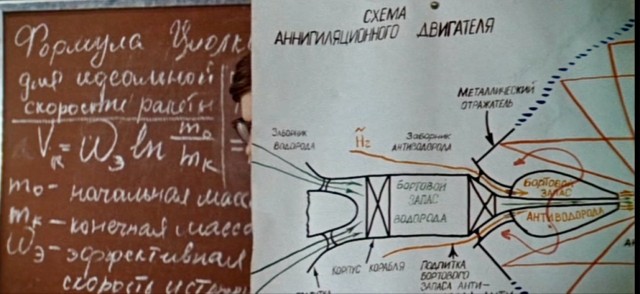 Формула Циолк
для идеальной
скорости ракеты
Vк = Wэ ln mo/mк =
mo - начальная масс
mк - конечная масса
Wэ - эффективная
скорость истечен
СХЕМА
АННИГИЛЯЦИОННОГО ДВИГАТЕЛЯ
МЕТАЛЛИЧЕСКИЙ
ОТРАЖАТЕЛЬ
ЗАБОРНИК
ВОДОРОДА
H̃2
ЗАБОРНИК
АНТИВОДОРОДА
БОРТОВОЙ
ЗАПАС
ВОДОРОДА
БОРТОВОЙ
ЗАПАС
АНТИВОДОРОДА
КОРПУС КОРАБЛЯ
ПОДПИТКА
БОРТОВОГО
ЗАПАСА АНТИ-